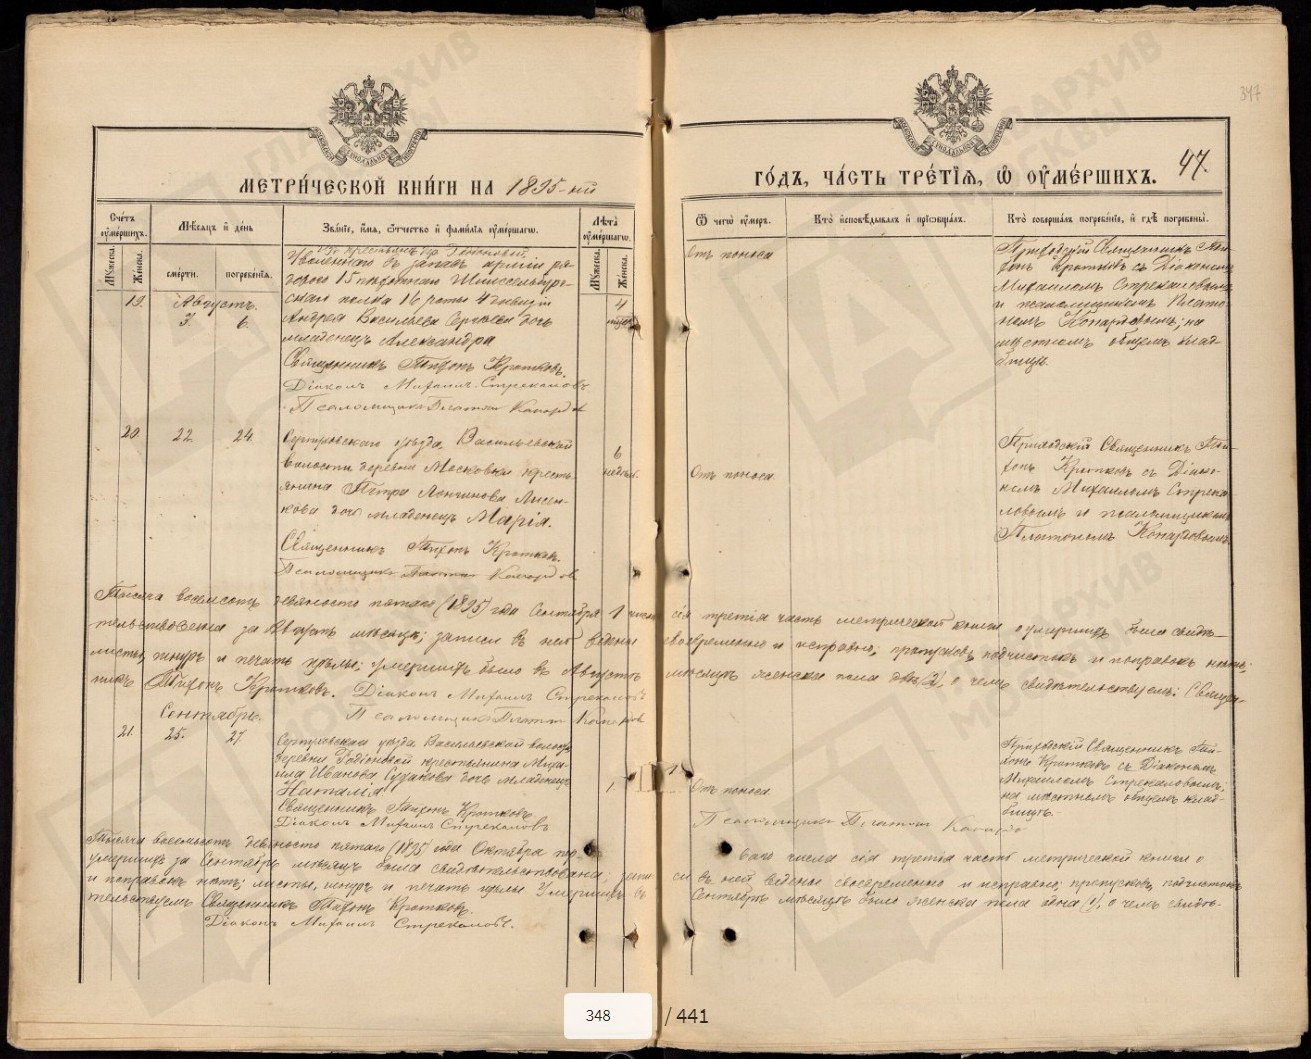 347
МЕТРИ́ЧЕСКОЙ КНИ́ГИ НА 1895-ый
ГО́ДЪ, ЧА́СТЬ ТРЕ́ТІѦ, Ѡ ОУМЕ́РШИХЪ.
47.
Сче́тъ оуме́ршихъ.
Мѣ́сяцъ и де́нь
Зва́нїе, и́мя, ѻ́тчество и фами́лїя оуме́ршагѡ.
Лѣ́та оуме́ршагѡ.
Ѿ чегѡ̀ оу́меръ.
Кто̀ и҆сповѣ́дывалъ и҆ прїѡбща́лъ.
Кто̀ соверша́лъ погребе́нїе, и҆ гдѣ̀ погребе́ны.
Му́жеска.
Же́нска.
сме́рти.
погребе́нїя.
Му́жеска.
Же́нска.
19.
Августъ.
3. 6.
Уволеннаго въ запасъ арміи ря-
дового 15 пѣхотнаго Шлиссельбург-
скаго полка 16 роты
Андрея Васильева Сергѣева дочь
младенецъ Александра
Священникъ Тихонъ Кротковъ.
Діаконъ Михаилъ Стрекаловъ
Псаломщикъ Платонъ
4
Отъ поноса
Приходскій Священникъ Ти-
хонъ Кротковъ съ Діакономъ
Михаиломъ Стрекаловымъ
и псаломщикомъ Плато-
номъ на
мѣстномъ общемъ клад-
бищѣ.
20 22. 24
Серпуховскаго уѣзда, Васильевской
волости деревни Московки кресть-
янина Петра Логгинова Лисен-
кова дочь младенецъ Марія.
Священникъ Тихонъ Кротковъ.
Псаломщикъ Платонъ
6
недѣль.
Отъ поноса
Приходскій Священникъ Ти-
хонъ Кротковъ съ Діако-
номъ Михаиломъ Стрека-
ловымъ и псаломщикомъ
Платономъ
Тысяча восемьсотъ девяносто пятаго (1895) года Сентября 1 числа сія третія часть метрической книги о умершихъ была свидѣ-
тельствована за Августъ мѣсяцъ; записи въ ней ведены своевременно и исправно; пропусковъ, подчистокъ и поправокъ нѣтъ;
листы, шнуръ и печать цѣлы; умершихъ было въ Августѣ мѣсяцѣ женска пола двѣ (2), о чемъ свидѣтельствуемъ: Священ-
никъ Тихонъ Кротковъ. Діаконъ Михаилъ Стрекаловъ
Псаломщикъ Платонъ
Сентябрь.
21. 25. 27.
Серпуховскаго уѣзда Васильевской волости
деревни Родіоновой крестьянина Миха-
ила Иванова Судакова дочь младенецъ
Наталія
Священникъ Тихонъ Кротковъ
Діаконъ Михаилъ Стрекаловъ
1
Отъ поноса
Псаломщикъ Платонъ
Приходскій Священникъ Ти-
хонъ Кротковъ съ Діакономъ
Михаиломъ Стрекаловымъ;
на мѣстномъ общемъ клад-
бищѣ.
Тысяча восемьсотъ девяносто пятаго (1895) года Октября пер-ваго числа сія третія часть метрической книги о
умершихъ за Сентябрь мѣсяцъ была свидѣтельствована; записи въ ней ведены своевременно и исправно; пропусковъ, подчистокъ
и поправокъ нѣтъ; листы, шнуръ и печать цѣлы. Умершихъ въ Сентябрѣ мѣсяцѣ было женска пола одна (1), о чемъ свидѣ-
тельствуемъ Священникъ Тихонъ Кротковъ.
Діаконъ Михаилъ Стрекаловъ.
348 / 441
ГЛАВАРХИВ МОСКВЫ